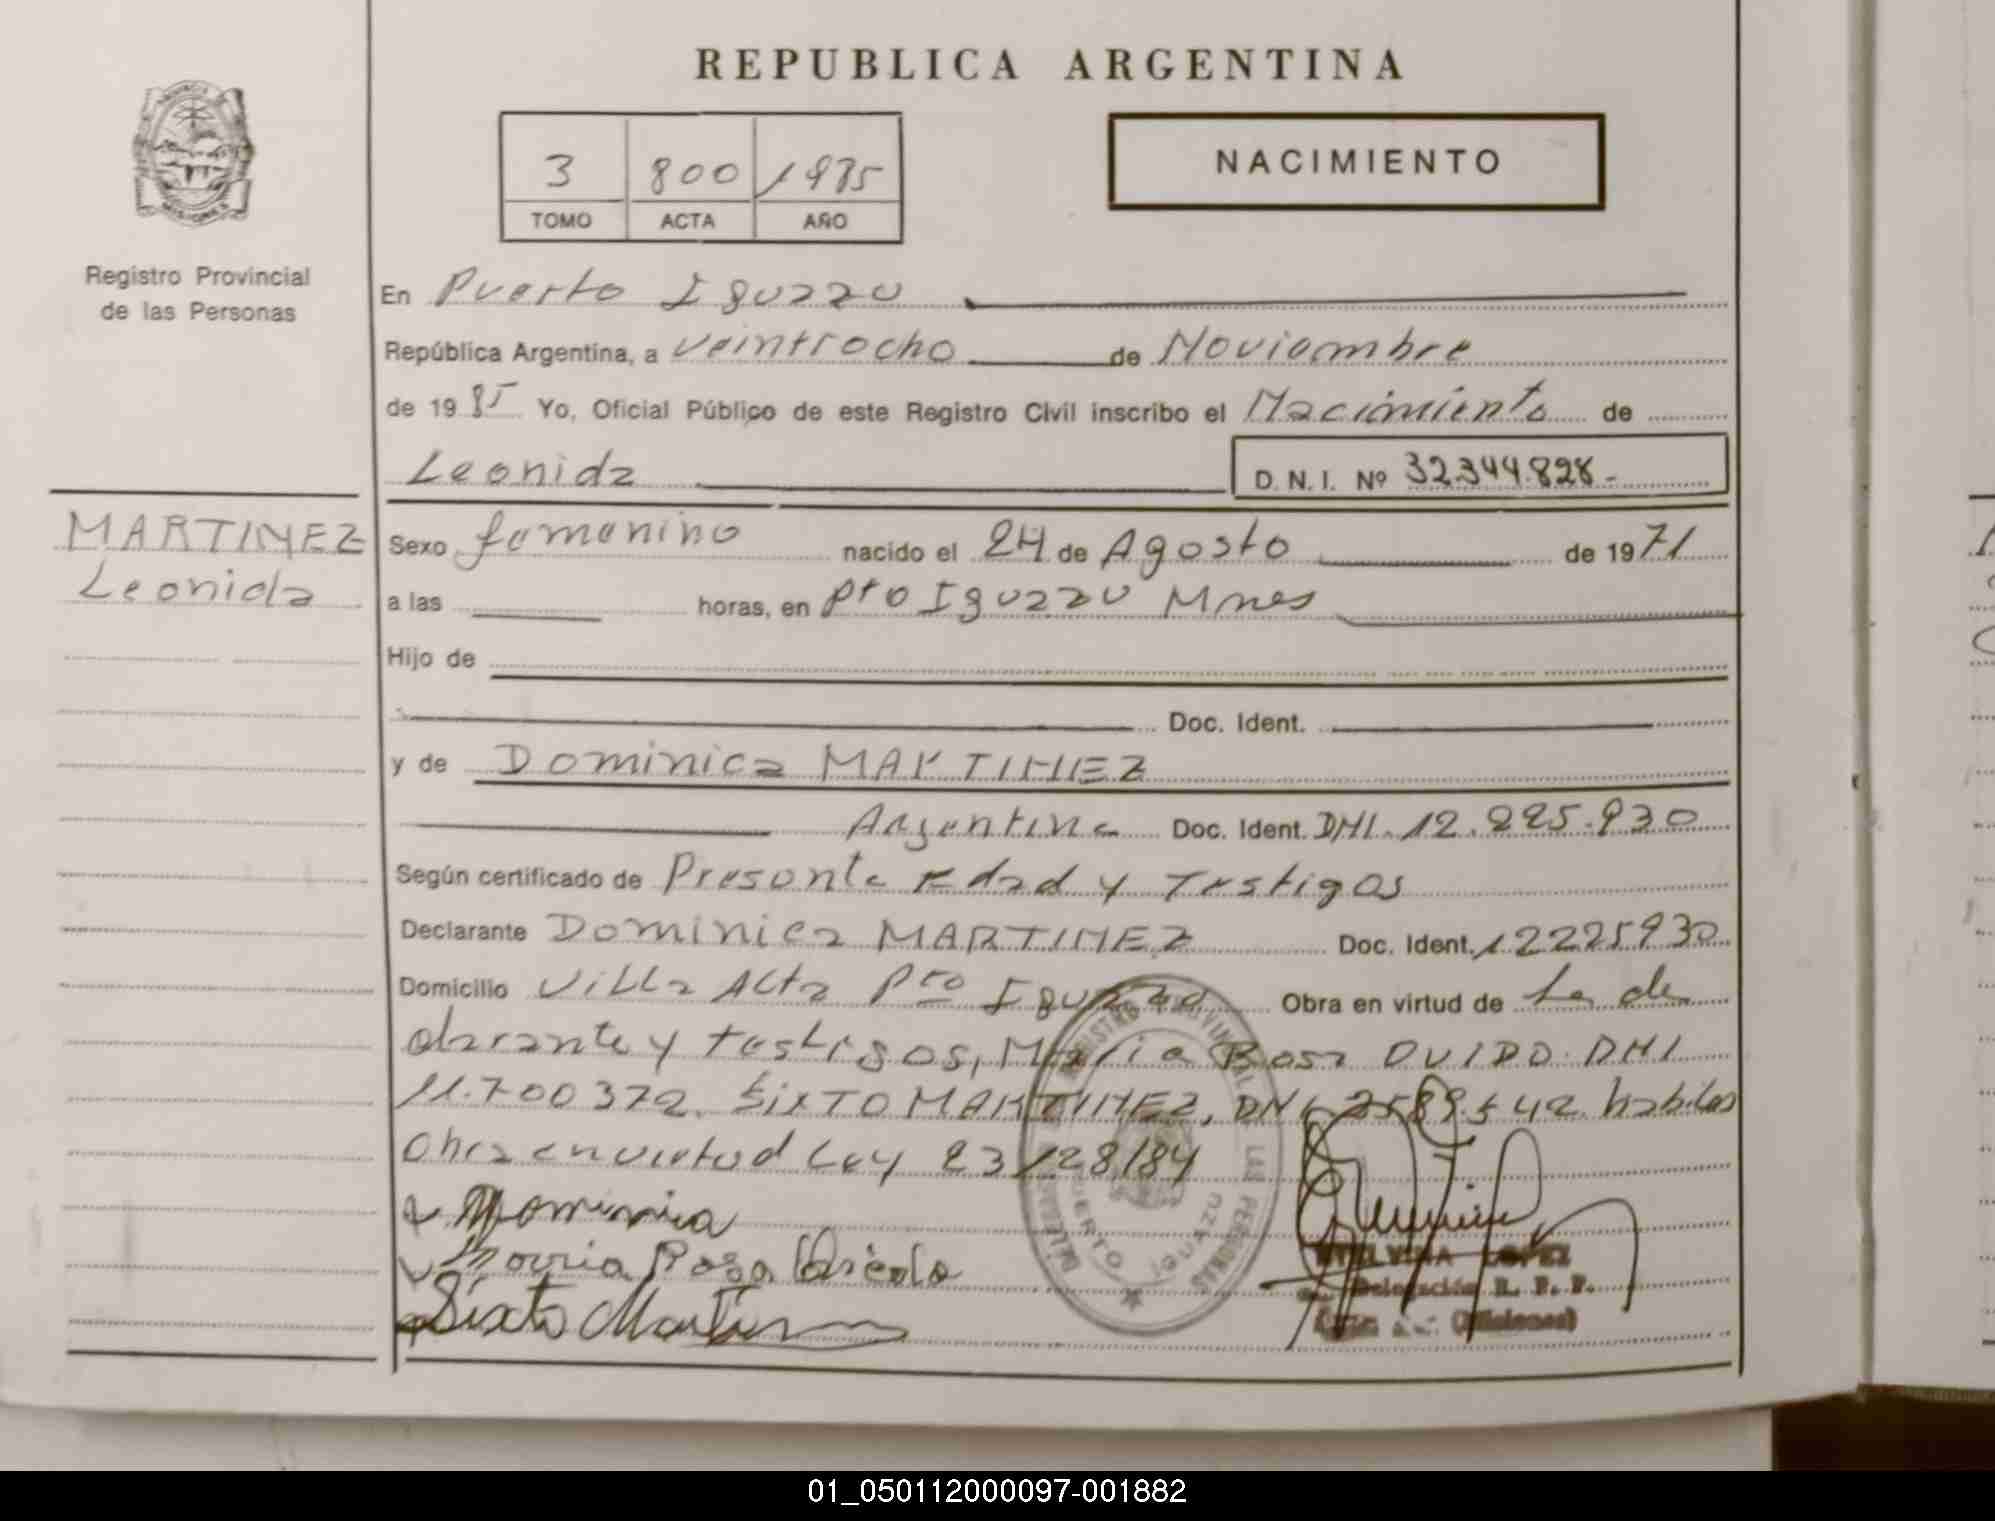 REPUBLICA ARGENTINA
3 800 1985
TOMO ACTA AÑO
NACIMIENTO
Registro Provincial
de las Personas
MARTINEZ
Leonida
En Puerto Iguazu
República Argentina, a veintiocho de Noviembre
de 1985 Yo, Oficial Público de este Registro Civil inscribo el Nacimiento de
Leonida D. N. I. Nº 32.344.828-
Sexo femenino nacido el 24 de Agosto de 1971
a las horas, en Pto Iguazu Mnes
Hijo de
Doc. Ident.
y de Dominica MARTINEZ
Argentina Doc. Ident. DNI. 12.225.930
Según certificado de Presente Edad y Testigos
Declarante Dominica MARTINEZ Doc. Ident. 12225930
Domicilio Villa Alta Pto Iguazu Obra en virtud de La de
clarante y testigos, Maria Rosa OVIDO DNI
11.700372. SIXTO MARTINEZ, DNI 7589542 habiles
Obra en virtud Ley 23128/84
Dominica
Maria Rosa
Sixto Martinez
REGISTRO PROVINCIAL DE LAS PERSONAS
PUERTO IGUAZU
LOPEZ
Delegación R. P. P.
(Misiones)
01_050112000097-001882